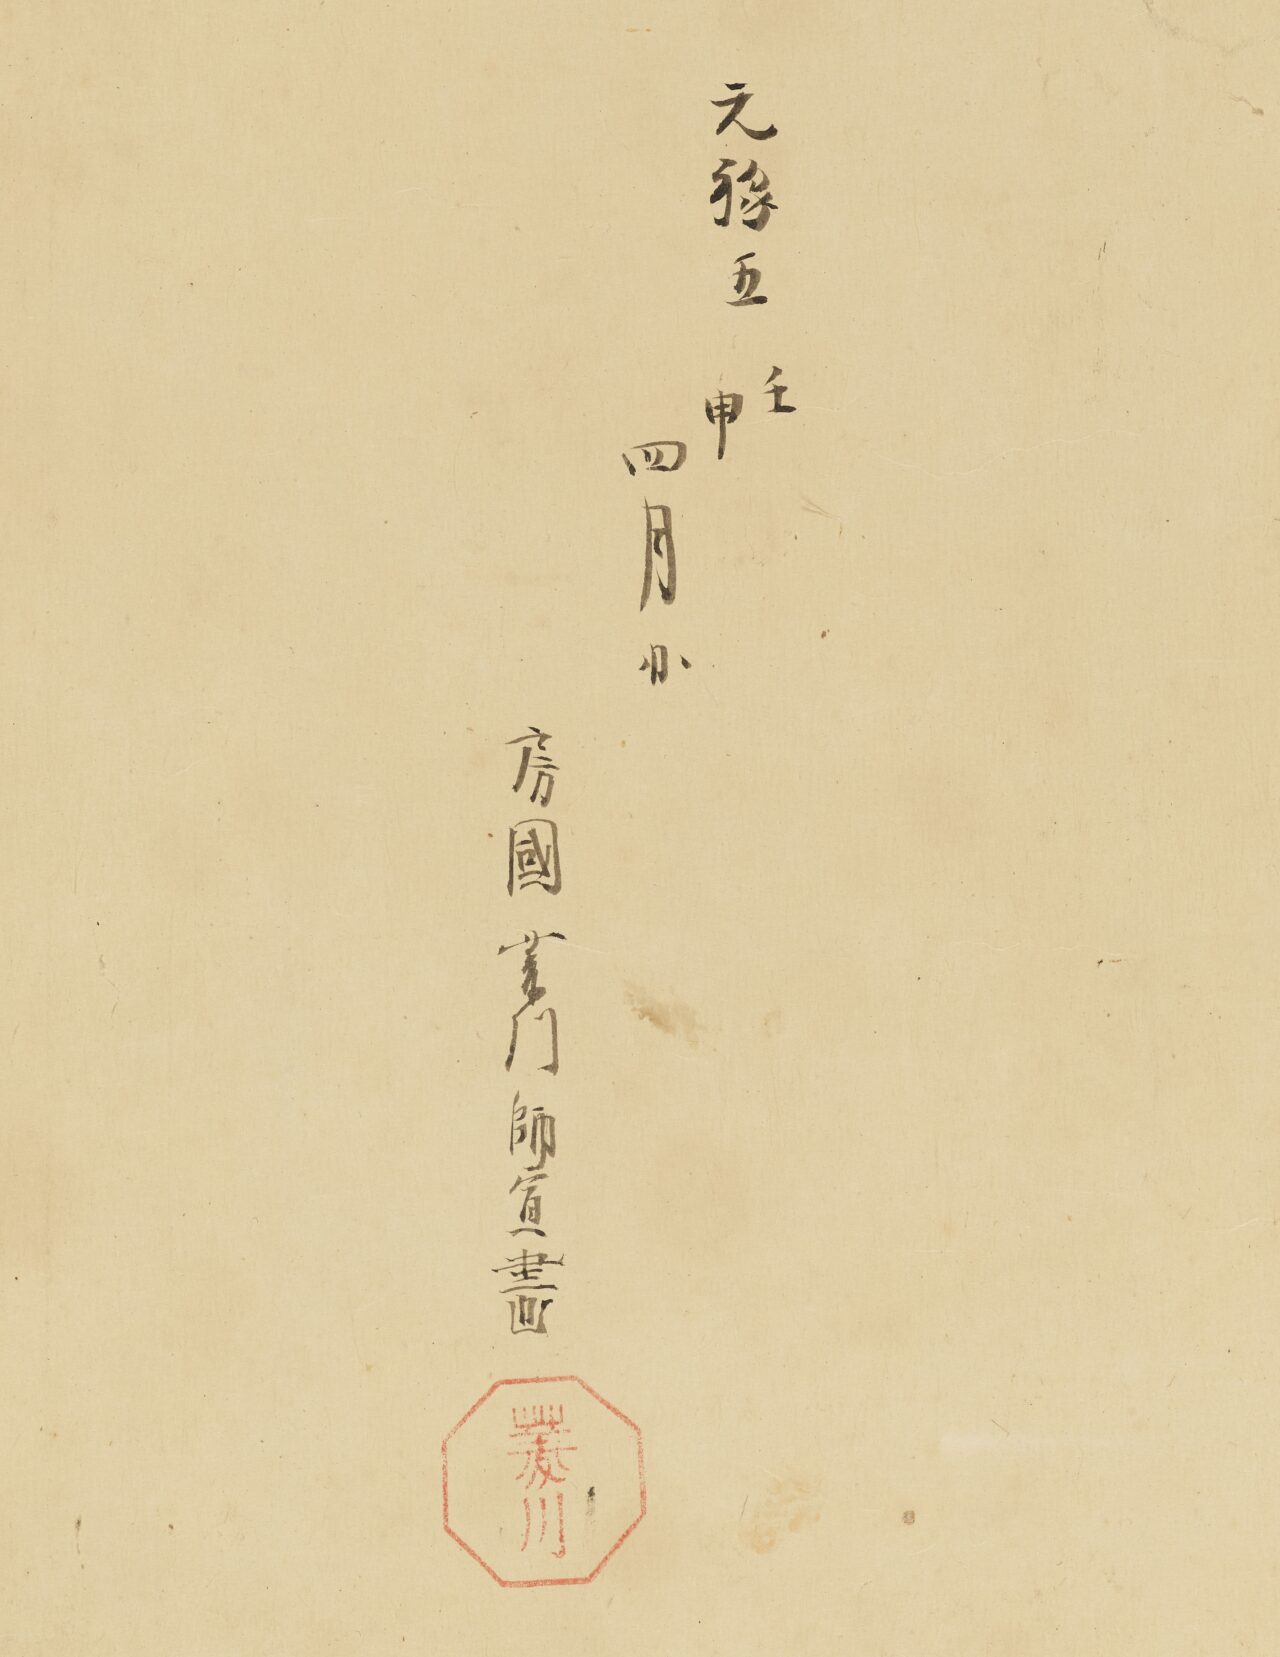 元祿五
壬申
四月日
房國
菱川
師宣畫
菱川